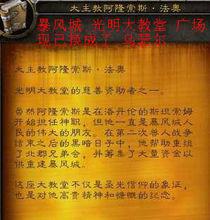 暴风城 光明大教堂 广场
现已换成了 乌瑟尔
大主教阿隆索斯·法奥
光明大教堂的慈善资助者之一。
虽然阿隆索斯是在洛丹伦的斯坦索姆
开始担任神职，但他一直是暴风城人
民的伟大的朋友。在第二次兽人战争
结束之后的黑暗日子中，他帮助重组
了北郡兄弟会，并筹集了大量资金以
供重建暴风城。
这座大教堂不仅是圣光信仰的象征，
也是对他高贵精神和慷慨的纪念。